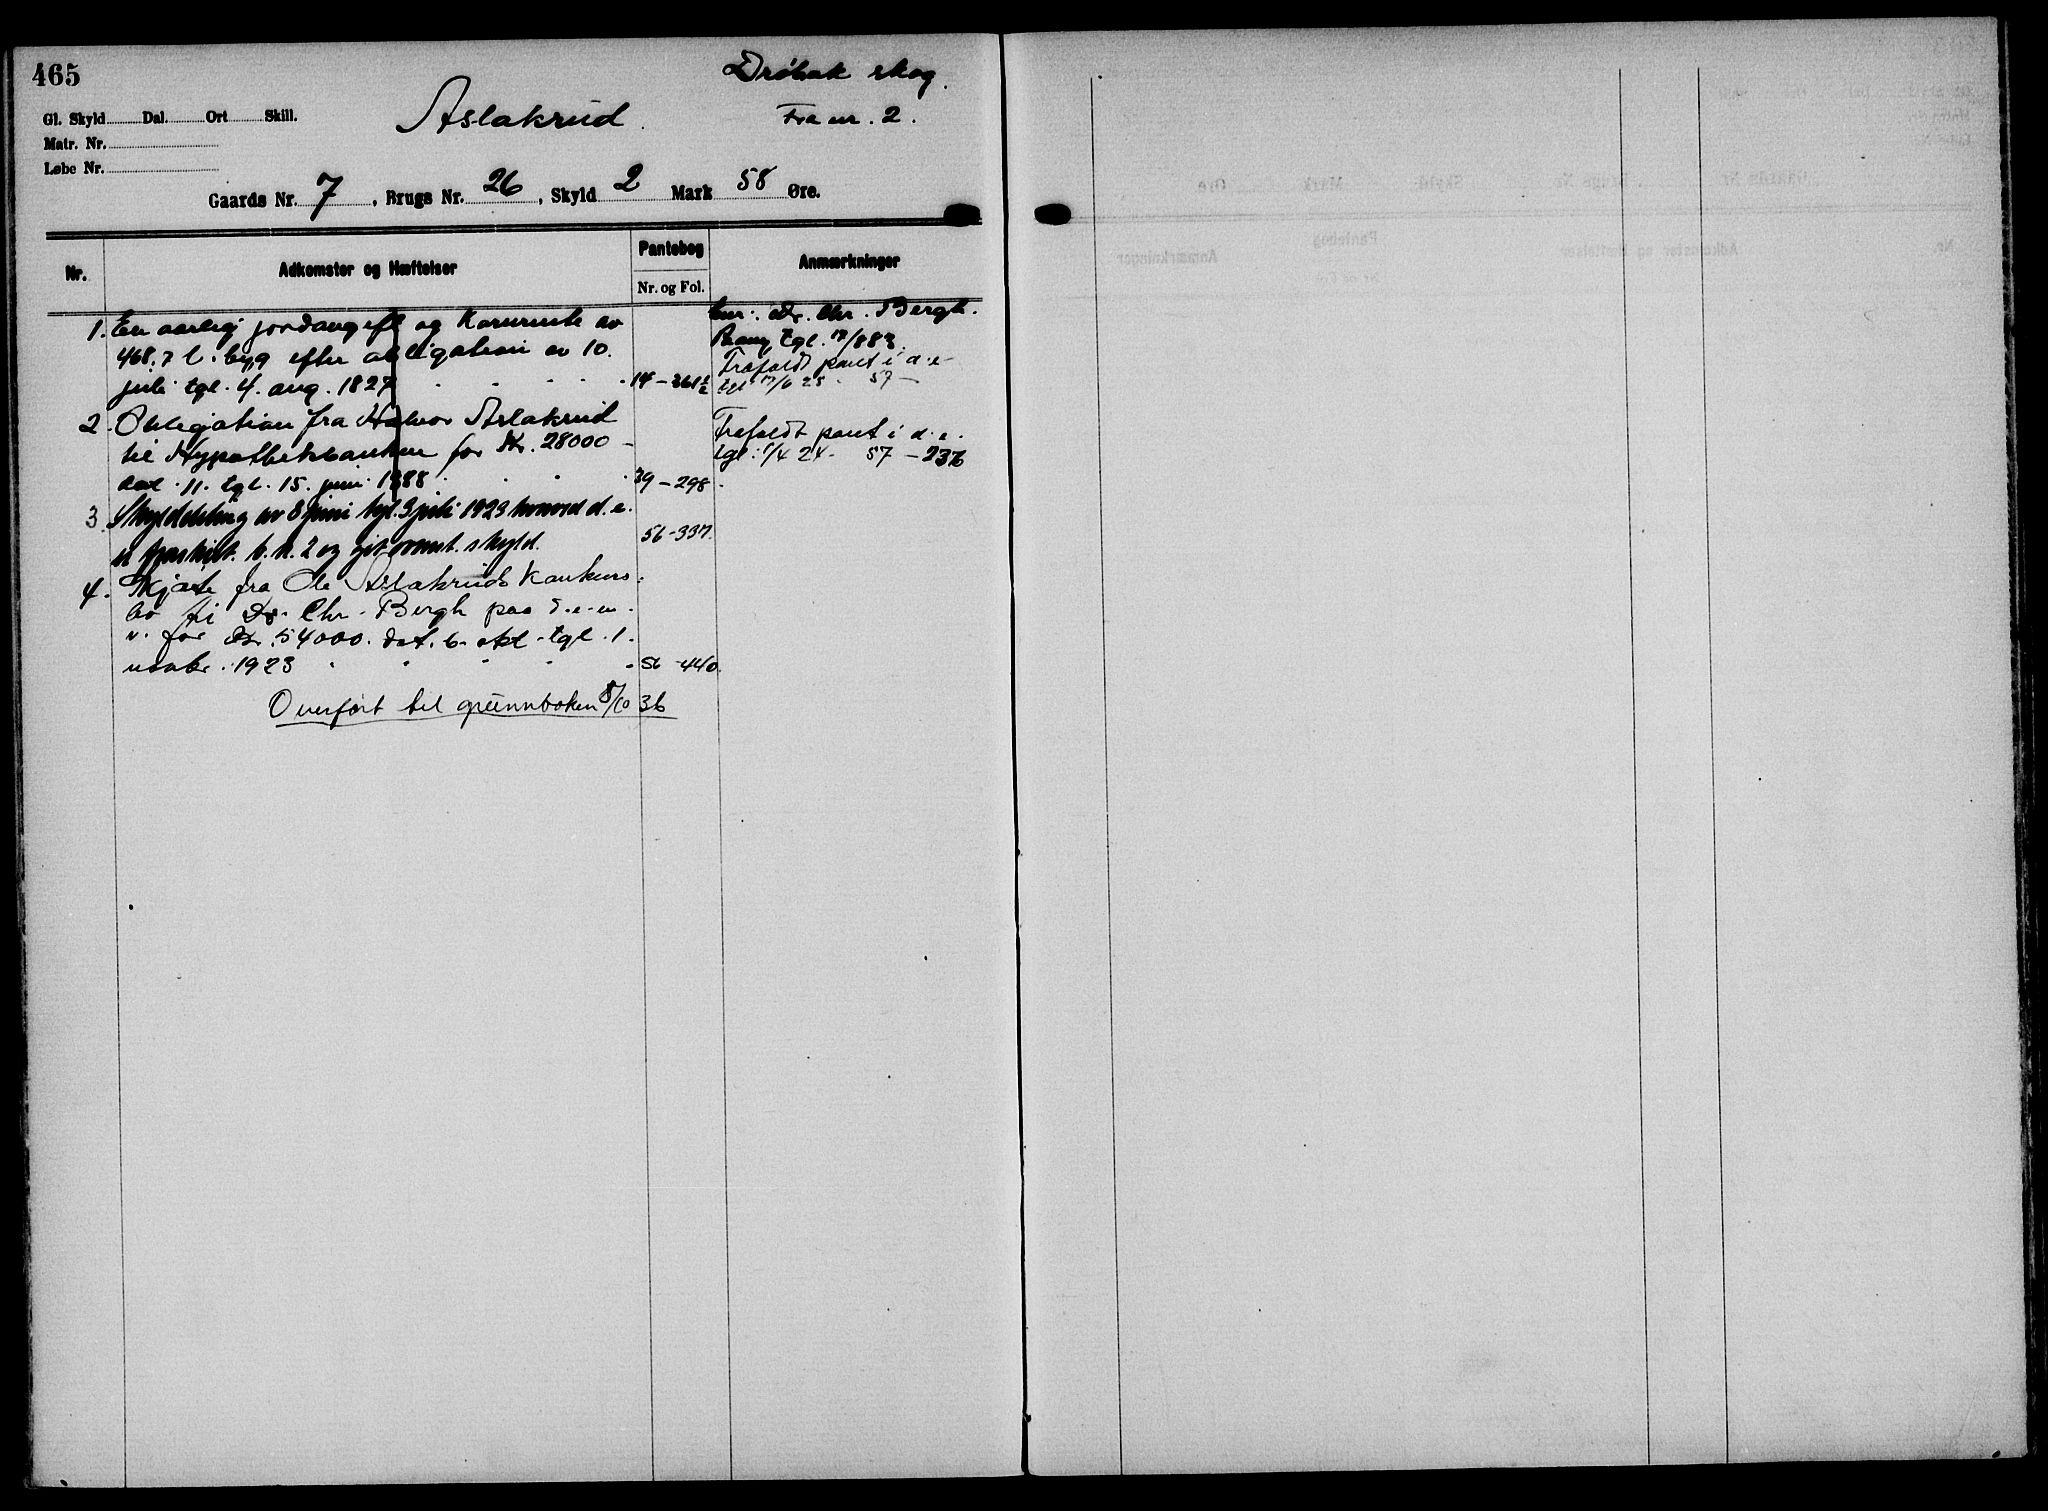 465
Drøbak skog.
Gl. Skyld Dal. Ort Skill.
Aslakrud.
Fra nr. 2.
Matr. Nr.
Løbe Nr.
Gaards Nr. 7, Brugs Nr. 26, Skyld 2 Mark 58 Øre.
Nr.
Adkomster og Hæftelser
Pantebog
Nr. og Fol.
Anmærkninger
1. En aarlig jordavgift og Kornrente av
468.7 l. byg efter obligation av 10.
juli tgl. 4. aug. 1827 14 - 361½
2. Obligation fra Halvor Aslakrud
til Hypothekbanken for Kr. 28000 -
dat. 11. tgl. 15. juni 1888 39 - 298
3. Skylddeling av 8 juni tgl. 3 juli 1923 hvorved d. e.
er fraskilt b. n. 2 og git ovenst. skyld. 56 - 337.
4. Skjøte fra Ole Aslakruds konkurs-
bo til Dr. Chr. Bergh paa d. e. m.
v. for Kr. 54000. dat. 6. okt. tgl. 1.
novbr. 1923 56 - 440.
Overført til grunnboken 8/10 36
Eier: Dr. Chr. Bergh.
tgl.
Frafaldt pant i d. e.
tgl. 57 -
Frafaldt pant i d. e.
tgl. 1/4 24 - 57 - 236